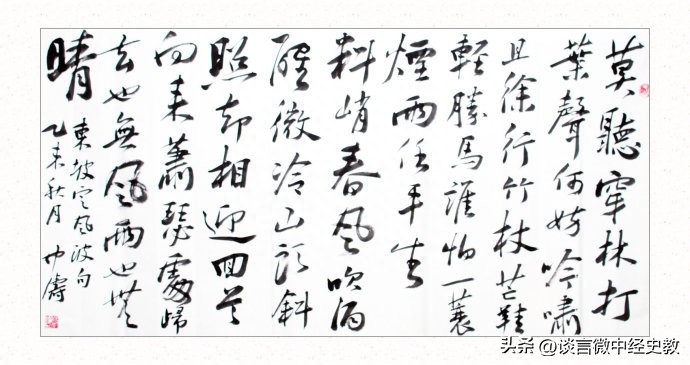 莫聽穿林打
葉聲何妨吟嘯
且徐行竹杖芒鞋
輕勝馬誰怕一蓑
煙雨任平生
料峭春風吹酒
醒微冷山頭斜
照却相迎回首
向來蕭瑟處歸
去也無風雨也無
晴
東坡定風波句
乙未秋月
头条 @谈言微中经史教